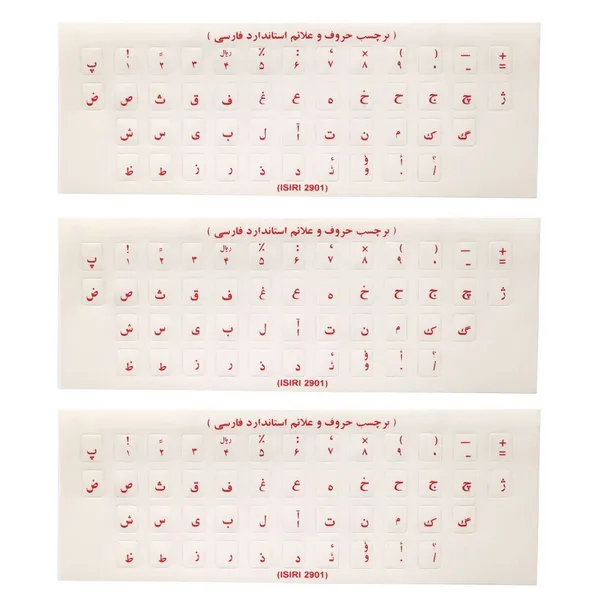 ( برچسب حروف و علائم استاندارد فارسی )
! ٪ : ، × ) ( — +
پ ۱ ۲ ۳ ۴ ۵ ۶ ۷ ۸ ۹ ۰ - =
ریال
ض ص ث ق ف غ ع ه خ ح ج چ ژ
ش س ی ب ل آ ا ت ن م ک گ
ظ ط ز ر ذ د ئ ء و ؤ . ! / ؟
(ISIRI 2901)
( برچسب حروف و علائم استاندارد فارسی )
! ٪ : ، × ) ( — +
پ ۱ ۲ ۳ ۴ ۵ ۶ ۷ ۸ ۹ ۰ - =
ریال
ض ص ث ق ف غ ع ه خ ح ج چ ژ
ش س ی ب ل آ ا ت ن م ک گ
ظ ط ز ر ذ د ئ ء و ؤ . ! / ؟
(ISIRI 2901)
( برچسب حروف و علائم استاندارد فارسی )
! ٪ : ، × ) ( — +
پ ۱ ۲ ۳ ۴ ۵ ۶ ۷ ۸ ۹ ۰ - =
ریال
ض ص ث ق ف غ ع ه خ ح ج چ ژ
ش س ی ب ل آ ا ت ن م ک گ
ظ ط ز ر ذ د ئ ء و ؤ . ! / ؟
(ISIRI 2901)